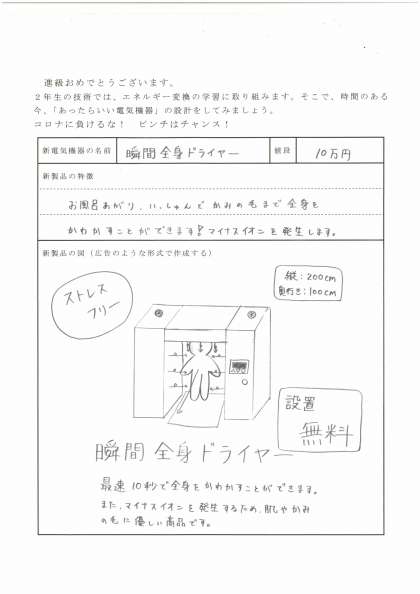 進級おめでとうございます。
２年生の技術では、エネルギー変換の学習に取り組みます。そこで、時間のある
今、「あったらいい電気機器」の設計をしてみましょう。
コロナに負けるな！　ピンチはチャンス！
新電気機器の名前 瞬間全身ドライヤー 値段 10万円
新製品の特徴
お風呂あがり、いっしゅんでかみの毛まで全身を
かわかすことができます!マイナスイオンを発生します。
新製品の図（広告のような形式で作成する）
縦:200cm
奥行き:100cm
ストレス
フリー
設置
無料
瞬間全身ドライヤー
最速10秒で全身をかわかすことができます。
また、マイナスイオンを発生するため、肌やかみ
の毛に優しい商品です。